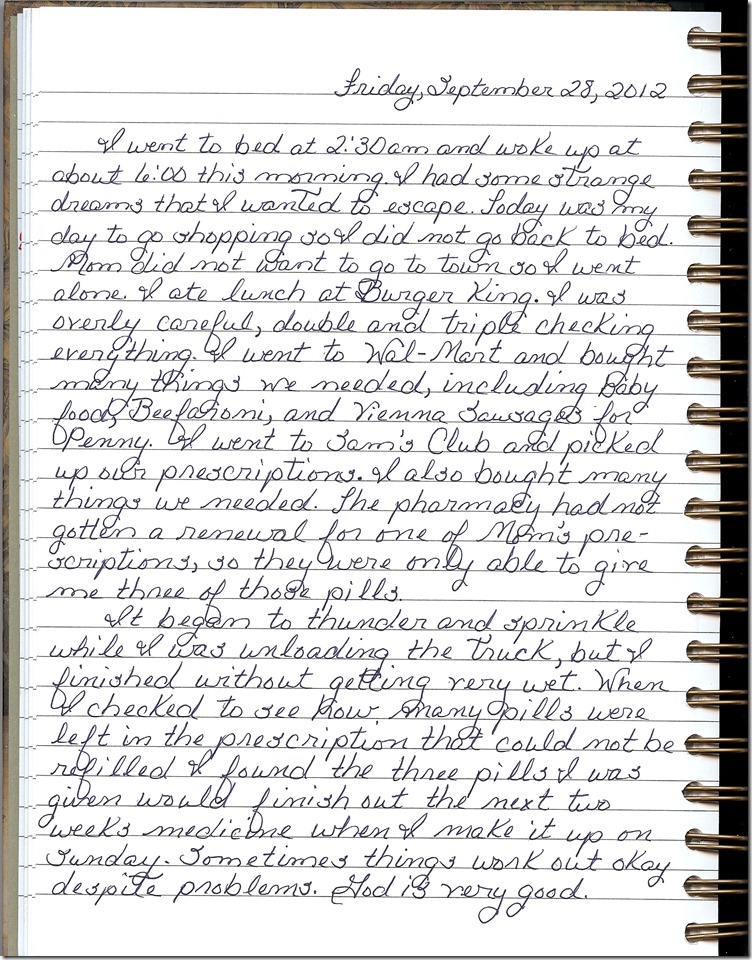 Friday, September 28, 2012
I went to bed at 2:30am and woke up at
about 6:00 this morning. I had some strange
dreams that I wanted to escape. Today was my
day to go shopping so I did not go back to bed.
Mom did not want to go to town so I went
alone. I ate lunch at Burger King. I was
overly careful, double and triple checking
everything. I went to Wal-Mart and bought
many things we needed, including Baby
food, Beefaroni, and Vienna Sausages for
Penny. I went to Sam's Club and picked
up our prescriptions. I also bought many
things we needed. The pharmacy had not
gotten a renewal for one of Mom's pre-
scriptions, so they were only able to give
me three of those pills.
It began to thunder and sprinkle
while I was unloading the truck, but I
finished without getting very wet. When
I checked to see how many pills were
left in the prescription that could not be
refilled I found the three pills I was
given would finish out the next two
weeks medicine when I make it up on
Sunday. Sometimes things work out okay
despite problems. God is very good.